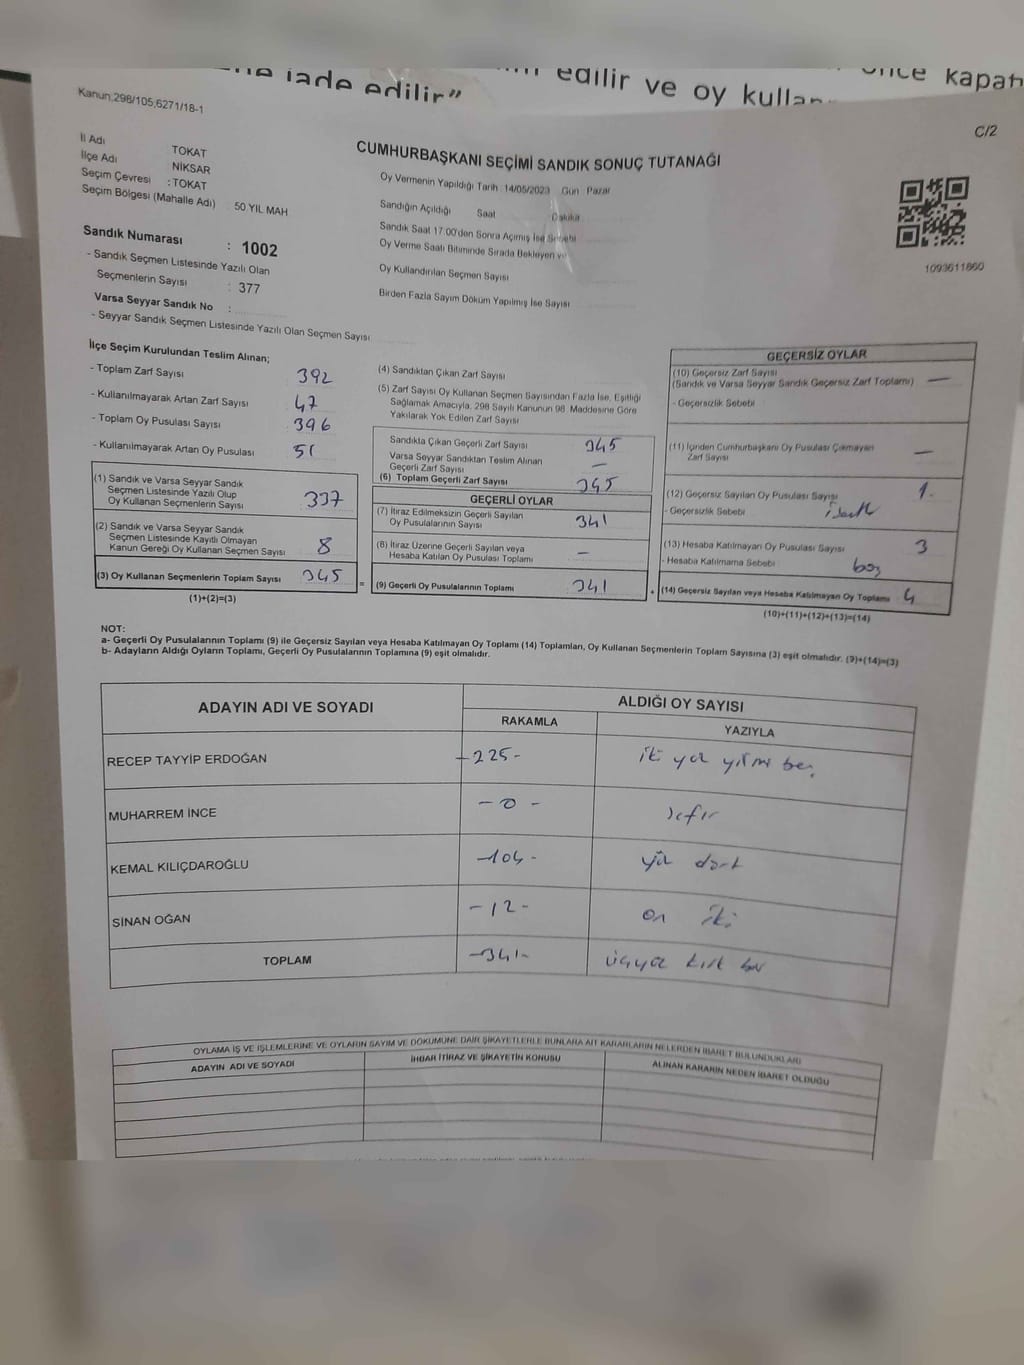 iade edilir"
edilir ve oy
önce
Kanun;298/105;6271/18-1
C/2
İl Adı TOKAT
İlçe Adı NİKSAR
Seçim Çevresi : TOKAT
Seçim Bölgesi (Mahalle Adı) 50 YIL MAH
CUMHURBAŞKANI SEÇİMİ SANDIK SONUÇ TUTANAĞI
Oy Vermenin Yapıldığı Tarih 14/05/2023 Gün Pazar
Sandığın Açıldığı Saat Dakika
Sandık Saat 17:00'den Sonra Açımış İse Sebebi
Oy Verme Saati Bitiminde Sırada Bekleyen ve
Oy Kullandırılan Seçmen Sayısı
Birden Fazla Sayım Döküm Yapılmış İse Sayısı
1093611860
Sandık Numarası : 1002
- Sandık Seçmen Listesinde Yazılı Olan
Seçmenlerin Sayısı : 377
Varsa Seyyar Sandık No :
- Seyyar Sandık Seçmen Listesinde Yazılı Olan Seçmen Sayısı
İlçe Seçim Kurulundan Teslim Alınan;
- Toplam Zarf Sayısı 392
- Kullanılmayarak Artan Zarf Sayısı 47
- Toplam Oy Pusulası Sayısı 396
- Kullanılmayarak Artan Oy Pusulası 51
(1) Sandık ve Varsa Seyyar Sandık
Seçmen Listesinde Yazılı Olup
Oy Kullanan Seçmenlerin Sayısı 337
(2) Sandık ve Varsa Seyyar Sandık
Seçmen Listesinde Kayıtlı Olmayan
Kanun Gereği Oy Kullanan Seçmen Sayısı 8
(3) Oy Kullanan Seçmenlerin Toplam Sayısı 345
(1)+(2)=(3)
(4) Sandıktan Çıkan Zarf Sayısı
(5) Zarf Sayısı Oy Kullanan Seçmen Sayısından Fazla İse, Eşitliği
Sağlamak Amacıyla, 298 Sayılı Kanunun 98. Maddesine Göre
Yakılarak Yok Edilen Zarf Sayısı
Sandıkta Çıkan Geçerli Zarf Sayısı 345
Varsa Seyyar Sandıktan Teslim Alınan
Geçerli Zarf Sayısı —
(6) Toplam Geçerli Zarf Sayısı 345
GEÇERLİ OYLAR
(7) İtiraz Edilmeksizin Geçerli Sayılan
Oy Pusulalarının Sayısı 341
(8) İtiraz Üzerine Geçerli Sayılan veya
Hesaba Katılan Oy Pusulası Toplamı —
= (9) Geçerli Oy Pusulalarının Toplamı 341
GEÇERSİZ OYLAR
(10) Geçersiz Zarf Sayısı
(Sandık ve Varsa Seyyar Sandık Geçersiz Zarf Toplamı) —
- Geçersizlik Sebebi
(11) İçinden Cumhurbaşkanı Oy Pusulası Çıkmayan
Zarf Sayısı —
(12) Geçersiz Sayılan Oy Pusulası Sayısı 1-
- Geçersizlik Sebebi
(13) Hesaba Katılmayan Oy Pusulası Sayısı 3
- Hesaba Katılmama Sebebi boş
+ (14) Geçersiz Sayılan veya Hesaba Katılmayan Oy Toplamı 4
(10)+(11)+(12)+(13)=(14)
NOT:
a- Geçerli Oy Pusulalarının Toplamı (9) ile Geçersiz Sayılan veya Hesaba Katılmayan Oy Toplamı (14) Toplamları, Oy Kullanan Seçmenlerin Toplam Sayısına (3) eşit olmalıdır. (9)+(14)=(3)
b- Adayların Aldığı Oyların Toplamı, Geçerli Oy Pusulalarının Toplamına (9) eşit olmalıdır.
ADAYIN ADI VE SOYADI ALDIĞI OY SAYISI
RAKAMLA YAZIYLA
RECEP TAYYİP ERDOĞAN -225- iki yüz yirmi beş
MUHARREM İNCE -0- sıfır
KEMAL KILIÇDAROĞLU -104- yüz dört
SİNAN OĞAN -12- on iki
TOPLAM -341- üçyüz kırk bir
OYLAMA İŞ VE İŞLEMLERİNE VE OYLARIN SAYIM VE DÖKÜMÜNE DAİR ŞİKAYETLERLE BUNLARA AİT KARARLARIN NELERDEN İBARET BULUNDUKLARI
ADAYIN ADI VE SOYADI İHBAR İTİRAZ VE ŞİKAYETİN KONUSU ALINAN KARARIN NEDEN İBARET OLDUĞU